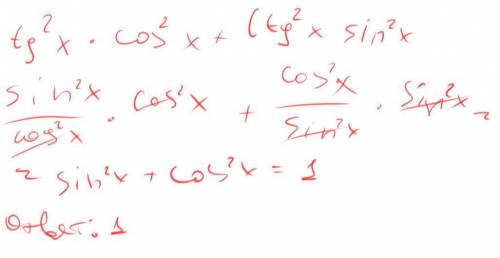 tg²x · cos²x + Ctg²x sin²x
sin²x/cos²x · cos²x + cos²x/sin²x · sin²x =
= sin²x + cos²x = 1
Ответ: 1